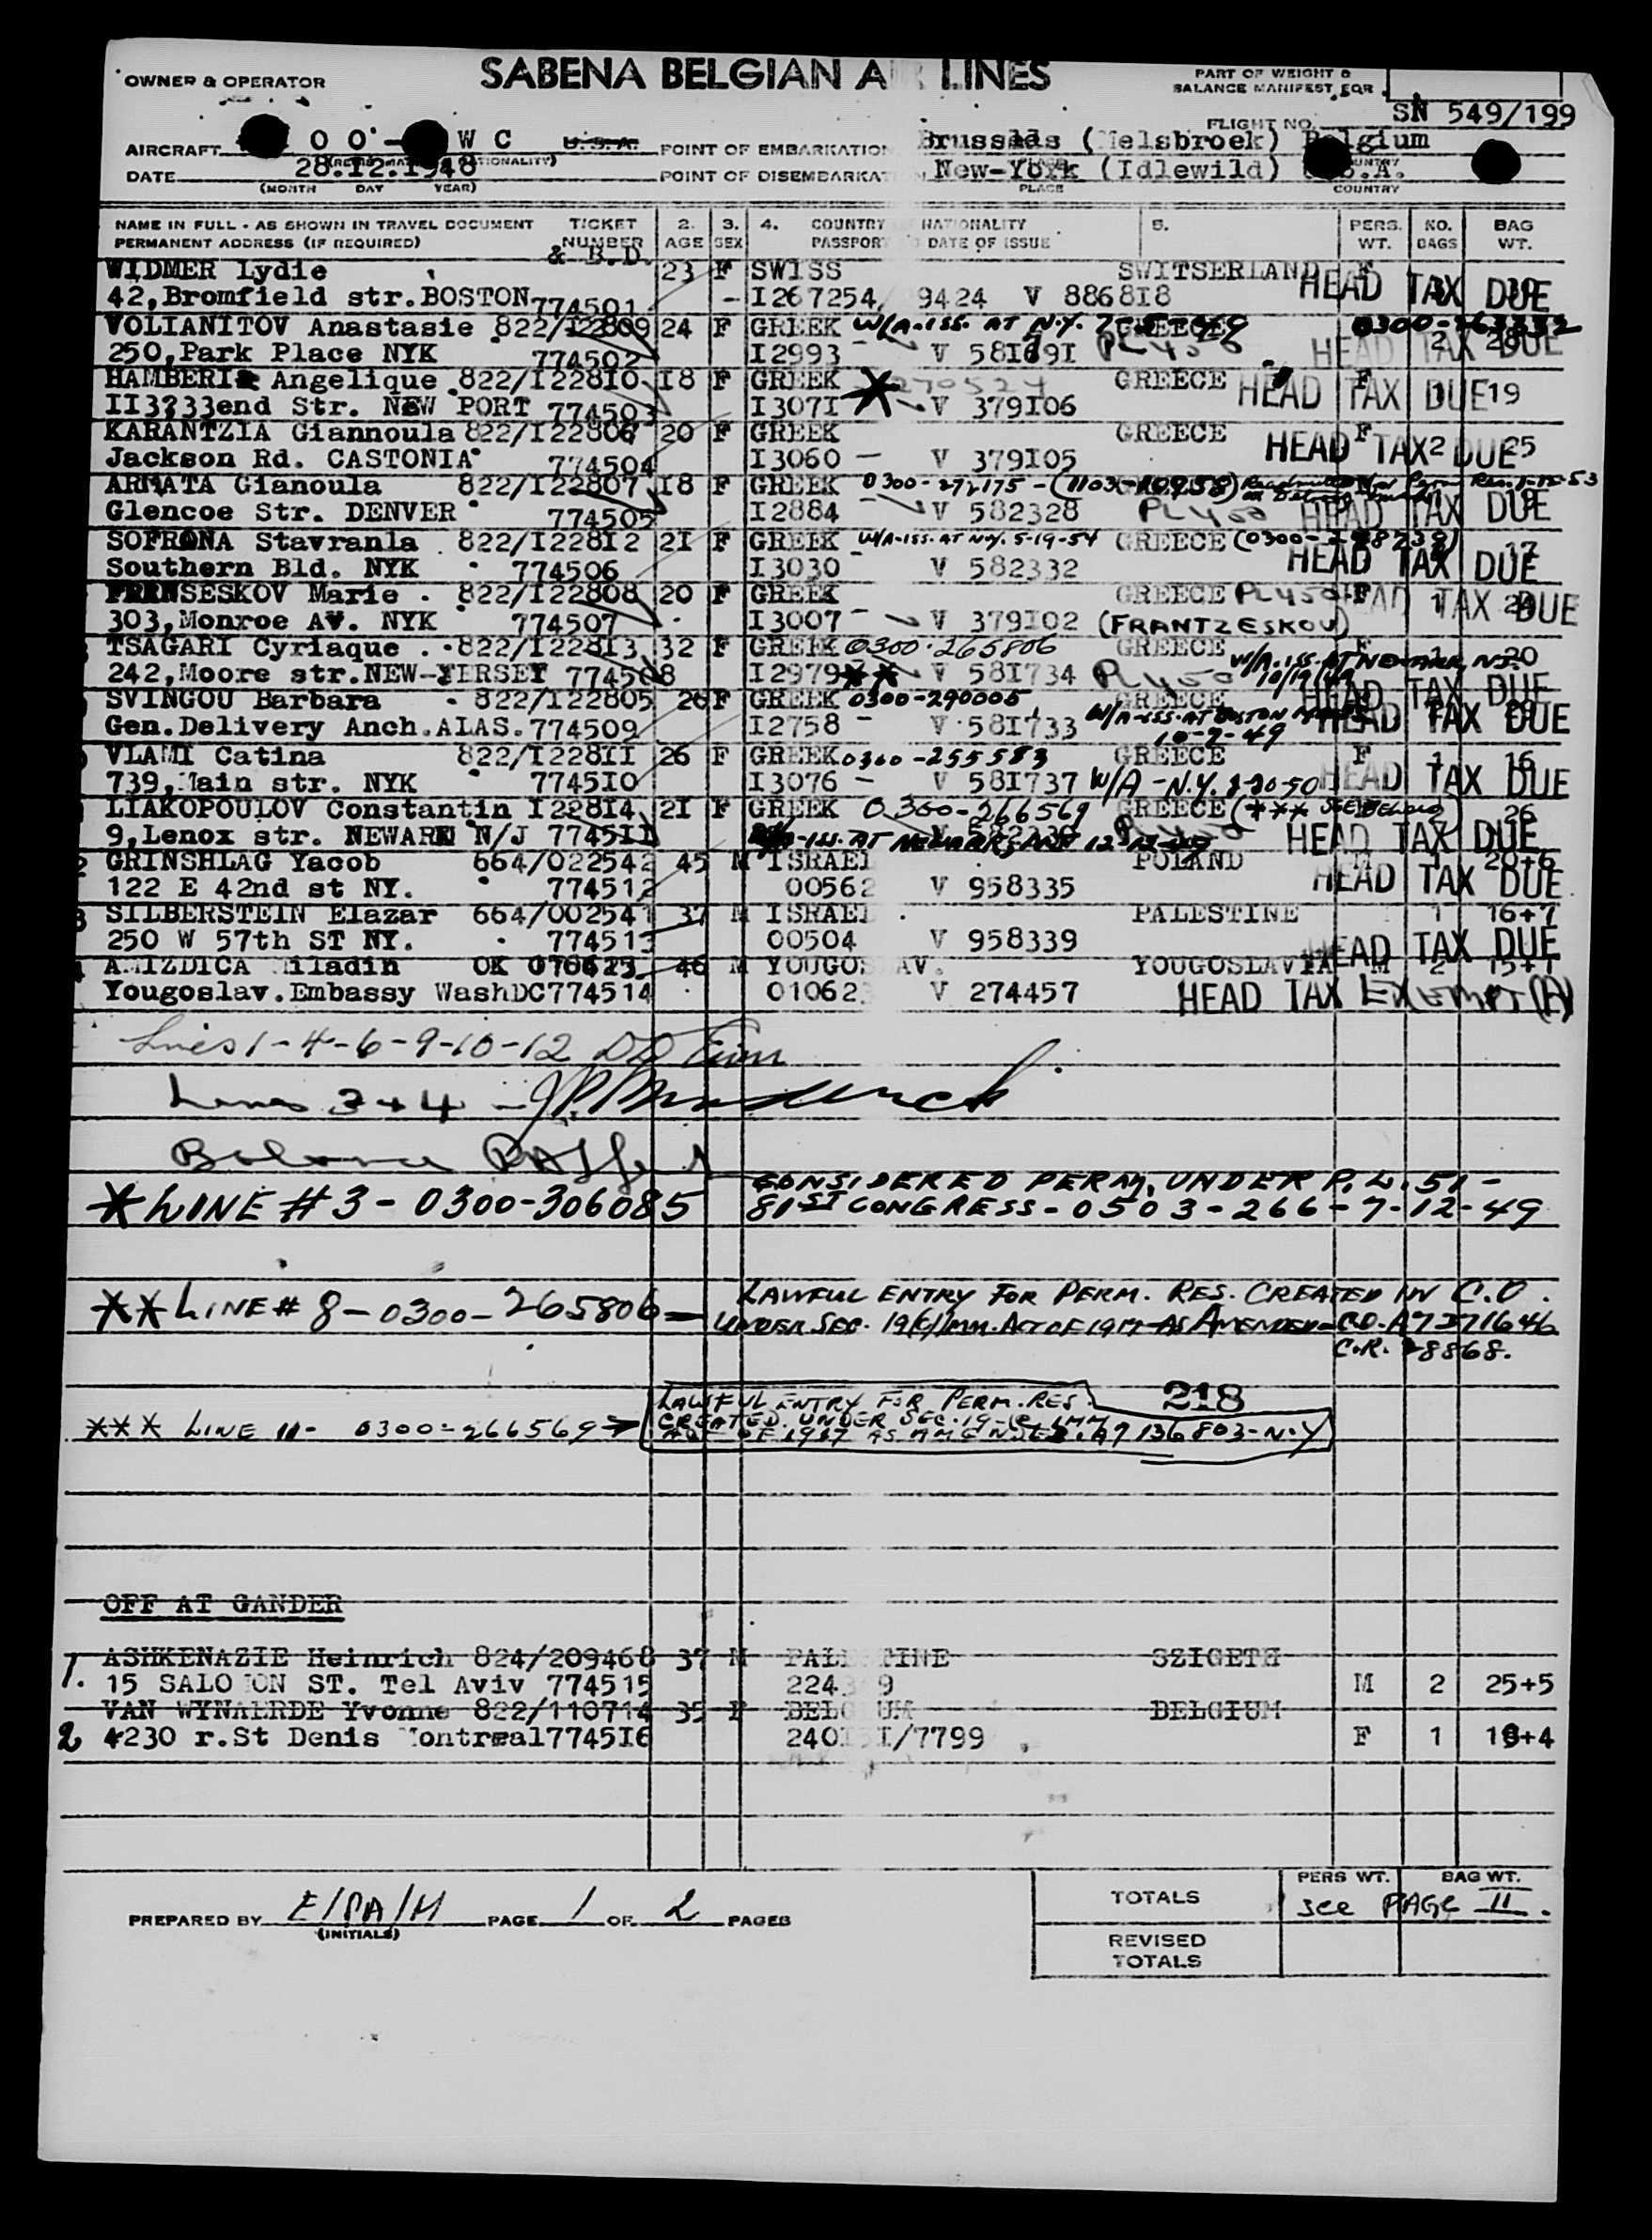 OWNER & OPERATOR
SABENA BELGIAN AIR LINES
PART OF WEIGHT &
BALANCE MANIFEST FOR
FLIGHT NO. SN 549/199
AIRCRAFT OO- WC U.S.A. POINT OF EMBARKATION Brussels (Melsbroek) Belgium
DATE 28.12.1948 POINT OF DISEMBARKATION New-York (Idlewild) U.S.A.
(MONTH DAY YEAR) PLACE COUNTRY
NAME IN FULL - AS SHOWN IN TRAVEL DOCUMENT TICKET 2. 3. 4. COUNTRY NATIONALITY 5. PERS. NO. BAG
PERMANENT ADDRESS (IF REQUIRED) NUMBER AGE SEX PASSPORT DATE OF ISSUE WT. BAGS WT.
& E.D.
WIDMER Lydie 23 F SWISS SWITSERLAND F
42,Bromfield str.BOSTON 774501 - I267254/ 9424 V 886818 HEAD TAX DUE
VOLIANITOV Anastasie 822/I22809 24 F GREEK W/A-ISS. AT N.Y. GREECE
250,Park Place NYK 774502 I2993 V 581691 PL450 2 HEAD TAX DUE
HAMBERI Angelique 822/I22810 I8 F GREEK GREECE F 19
II3?33end Str. NEW PORT 774503 I3071 * V 379I06 HEAD TAX DUE
KARANTZIA Giannoula 822/I22806 20 F GREEK GREECE F 2 25
Jackson Rd. CASTONIA 774504 I3060 - V 379I05 HEAD TAX DUE
ARMATA Gianoula 822/I22807 I8 F GREEK 0300-272175-(1103-10958)
Glencoe Str. DENVER 774505 I2884 V 582328 PL450 HEAD TAX DUE
SOFRONA Stavranla 822/I22812 2I F GREEK W/A-ISS. AT N.Y. 5-19-54 GREECE 17
Southern Bld. NYK 774506 I3030 V 582332 HEAD TAX DUE
FRANSESKOV Marie 822/I22808 20 F GREEK GREECE PL450 F 1
303,Monroe AV. NYK 774507 I3007 - V 379I02 (FRANTZESKOU) HEAD TAX DUE
TSAGARI Cyriaque 822/I22813 32 F GREEK 0300-265806 GREECE F 1 20
242,Moore str.NEW-YERSEY 774508 I2979 ** V 58I734 PL450 W/A-ISS. AT NEWARK, N.J. 10/19/49 HEAD TAX DUE
SVINGOU Barbara 822/I22805 26 F GREEK 0300-290005 GREECE
Gen.Delivery Anch.ALAS.774509 I2758 - V 58I733 W/A-ISS. AT BOSTON HEAD TAX DUE
VLAMI Catina 822/I228II 26 F GREEK 0300-255583 GREECE F 1 16
739,Main str. NYK 7745I0 I3076 - V 58I737 W/A - N.Y. 2-20-50 HEAD TAX DUE
LIAKOPOULOV Constantin I22814 2I F GREEK 0300-266569 GREECE (*** SEE BELOW) 26
9,Lenox str. NEWARK N/J 7745II HEAD TAX DUE
GRINSHLAG Yacob 664/022542 45 M ISRAEL POLAND M 1 20+6
122 E 42nd st NY. 774512 00562 V 958335 HEAD TAX DUE
SILBERSTEIN Elazar 664/002541 37 M ISRAEL PALESTINE 1 16+7
250 W 57th ST NY. 774513 00504 V 958339 HEAD TAX DUE
AMIZDICA Miladin OK 46 M YOUGOSLAV. YOUGOSLAVIA M 2 15+1
Yougoslav.Embassy WashDC774514 01062 V 274457 HEAD TAX EXEMPT (A)
Lines 1-4-6-9-10-12
Lines 3+4 -
Balance
*LINE #3 - 0300-306085 CONSIDERED PERM. UNDER P.L. 51-
81ST CONGRESS - 0503-266-7-12-49
**LINE# 8-0300-265806 - LAWFUL ENTRY FOR PERM. RES. CREATED IN C.O.
UNDER SEC. 19(c) IMM. ACT OF 1917 AS AMENDED - CO. A7371646
C.R. 28868.
218
LAWFUL ENTRY FOR PERM. RES.
*** LINE 11- 0300-266569 → CREATED UNDER SEC. 19-(c) IMM
ACT OF 1917 AS AMENDED. A7136803-N.Y
OFF AT GANDER
1. ASHKENAZIE Heinrich 824/209468 37 M PALESTINE SZIGETH
15 SALOMON ST. Tel Aviv 774515 M 2 25+5
2 VAN WYNAERDE Yvonne 822/110714 35 F BELGIUM BELGIUM
4230 r.St Denis Montreal774516 F 1 18+4
PREPARED BY E/PA/H PAGE 1 OF 2 PAGES
(INITIALS)
PERS WT. BAG WT.
TOTALS see PAGE II.
REVISED
TOTALS